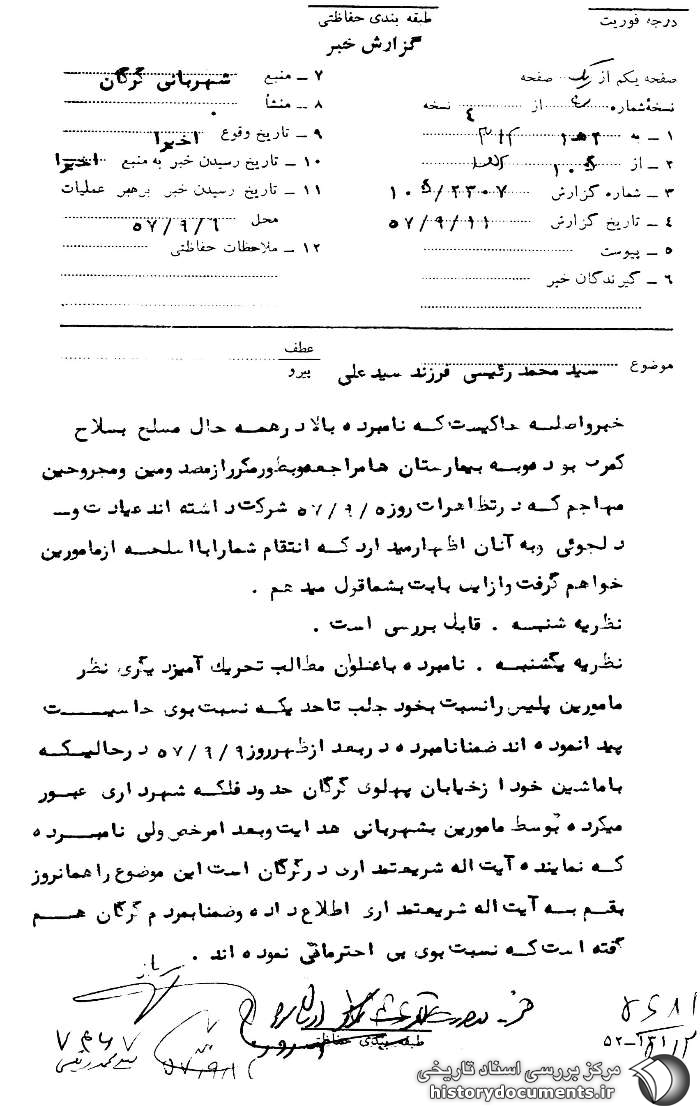 درجه فوریت
طبقه بندی حفاظتی
گزارش خبر
صفحه یکم از یک صفحه
نسخه شماره از ٤ نسخه
١ ـ به ٣١٢
٢ ـ از ١٠ﻫ
٣ ـ شماره گزارش ١٠ﻫ/٢٣٠٧
٤ ـ تاریخ گزارش ٥٧/٩/١١
٥ ـ پیوست
٦ ـ گیرندگان خبر
٧ ـ منبع شهربانی گرگان
٨ ـ منشأ
٩ ـ تاریخ وقوع اخیرا
١٠ ـ تاریخ رسیدن خبر به منبع اخیرا
١١ ـ تاریخ رسیدن خبر برهبر عملیات
محل ٥٧/٩/٦
١٢ ـ ملاحظات حفاظتی
موضوع سید محمد رئیسی فرزند سید علی
عطف
پیرو
خبرواصله حاکیست که نامبرده بالا در همه حال مسلح بسلاح
کمری بوده و به بیمارستان ها مراجعه و بطور مکرر از مصدومین و مجروحین
مهاجم که در تظاهرات روز ٥٧/٩/٥ شرکت داشته اند عیادت و
دلجوئی و به آنان اظهار میدارد که انتقام شما را با اسلحه از مامورین
خواهم گرفت و از این بابت بشما قول میدهم .
نظریه شنبه . قابل بررسی است .
نظریه یکشنبه . نامبرده با عنوان مطالب تحریک آمیز دیگری نظر
مامورین پلیس را نسبت بخود جلب تا حدیکه نسبت بوی حاسیت
پیدا نموده اند ضمنا نامبرده در بعد از ظهر روز ٥٧/٩/٩ در حالیکه
با ماشین خود از خیابان پهلوی گرگان حدود فلکه شهرداری عبور
میکرده توسط مامورین بشهربانی هدایت و بعدا مرخص ولی نامبرده
که نماینده آیت اله شریعتمداری در گرگان است این موضوع را همانروز
بقم به آیت اله شریعتمداری اطلاع داده و ضمنا بمردم گرگان هم
گفته است که نسبت بوی بی احترمانی نموده اند .
طبقه بندی حفاظتی
٥٢ـ١٢١
مرکز بررسی اسناد تاریخی
historydocuments.ir